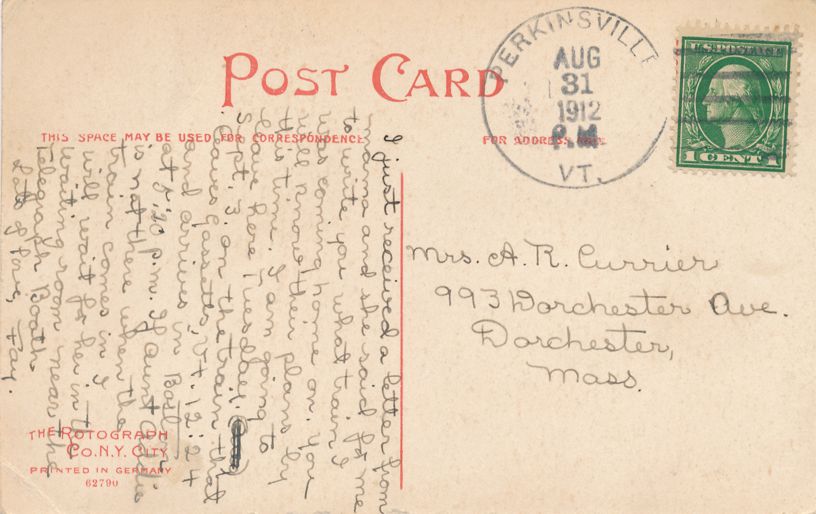 POST CARD
THIS SPACE MAY BE USED FOR CORRESPONDENCE
FOR ADDRESS ONLY
PERKINSVILLE
AUG
31
1912
P.M.
VT.
U.S. POSTAGE
1 CENT 1
I just received a letter from
mama and she said for me
to write you what train I
was coming home on. You
will know their plans by
this time. I am going to
leave here Tuesday,
Sept. 3. on the train that
leaves Gassetts, Vt. 12:24
and arrives in Boston
at 5:20 p.m. If Aunt
is not there when the
train comes in I
will wait for her in the
waiting room near the
Telegraph Booth.
Lots of love, Fay.
Mrs. A. R. Currier
993 Dorchester Ave.
Dorchester,
Mass.
THE ROTOGRAPH
CO. N.Y. CITY
PRINTED IN GERMANY
62790